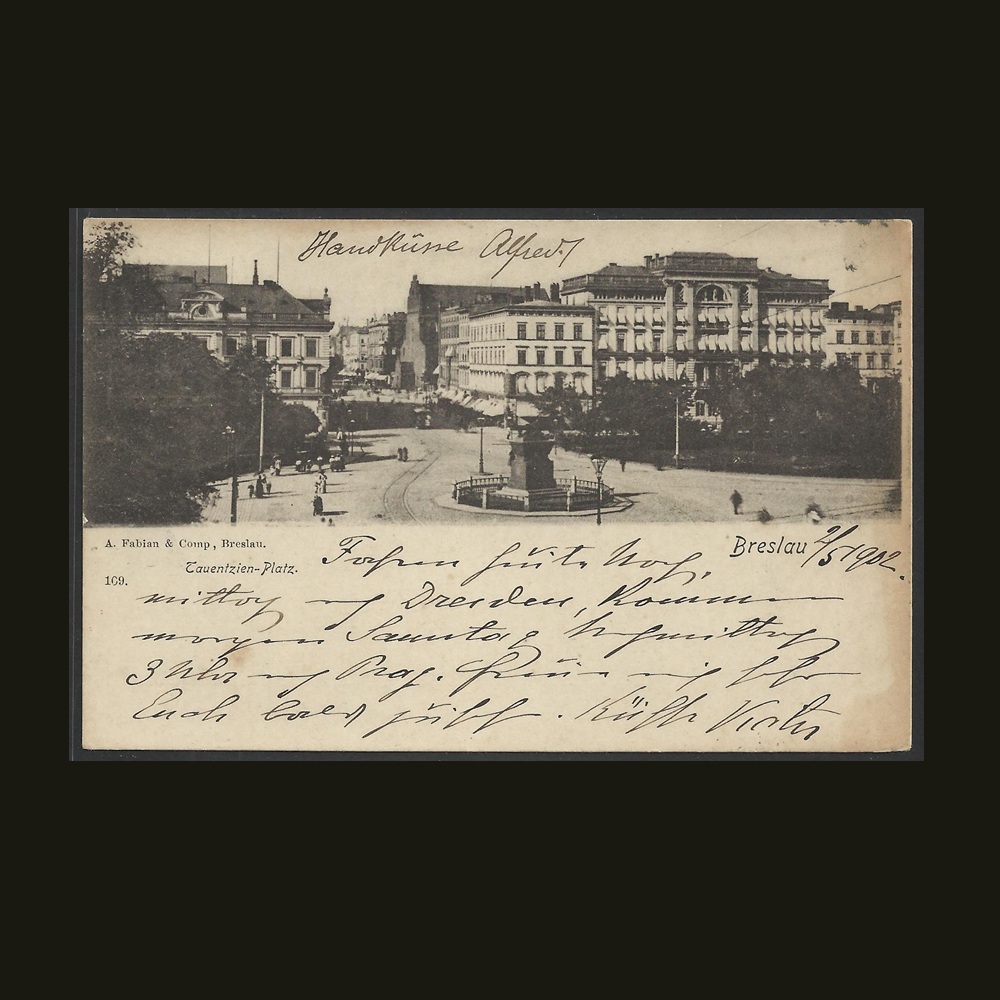 Handküsse Alfred
A. Fabian & Comp., Breslau.
Breslau 2/5 1902.
Tauentzien-Platz.
169.
Fahren heute Nach
mittag nach Dresden, kommen
morgen Samstag Nachmittag
3 Uhr nach Prag. Freue mich sehr
Euch bald